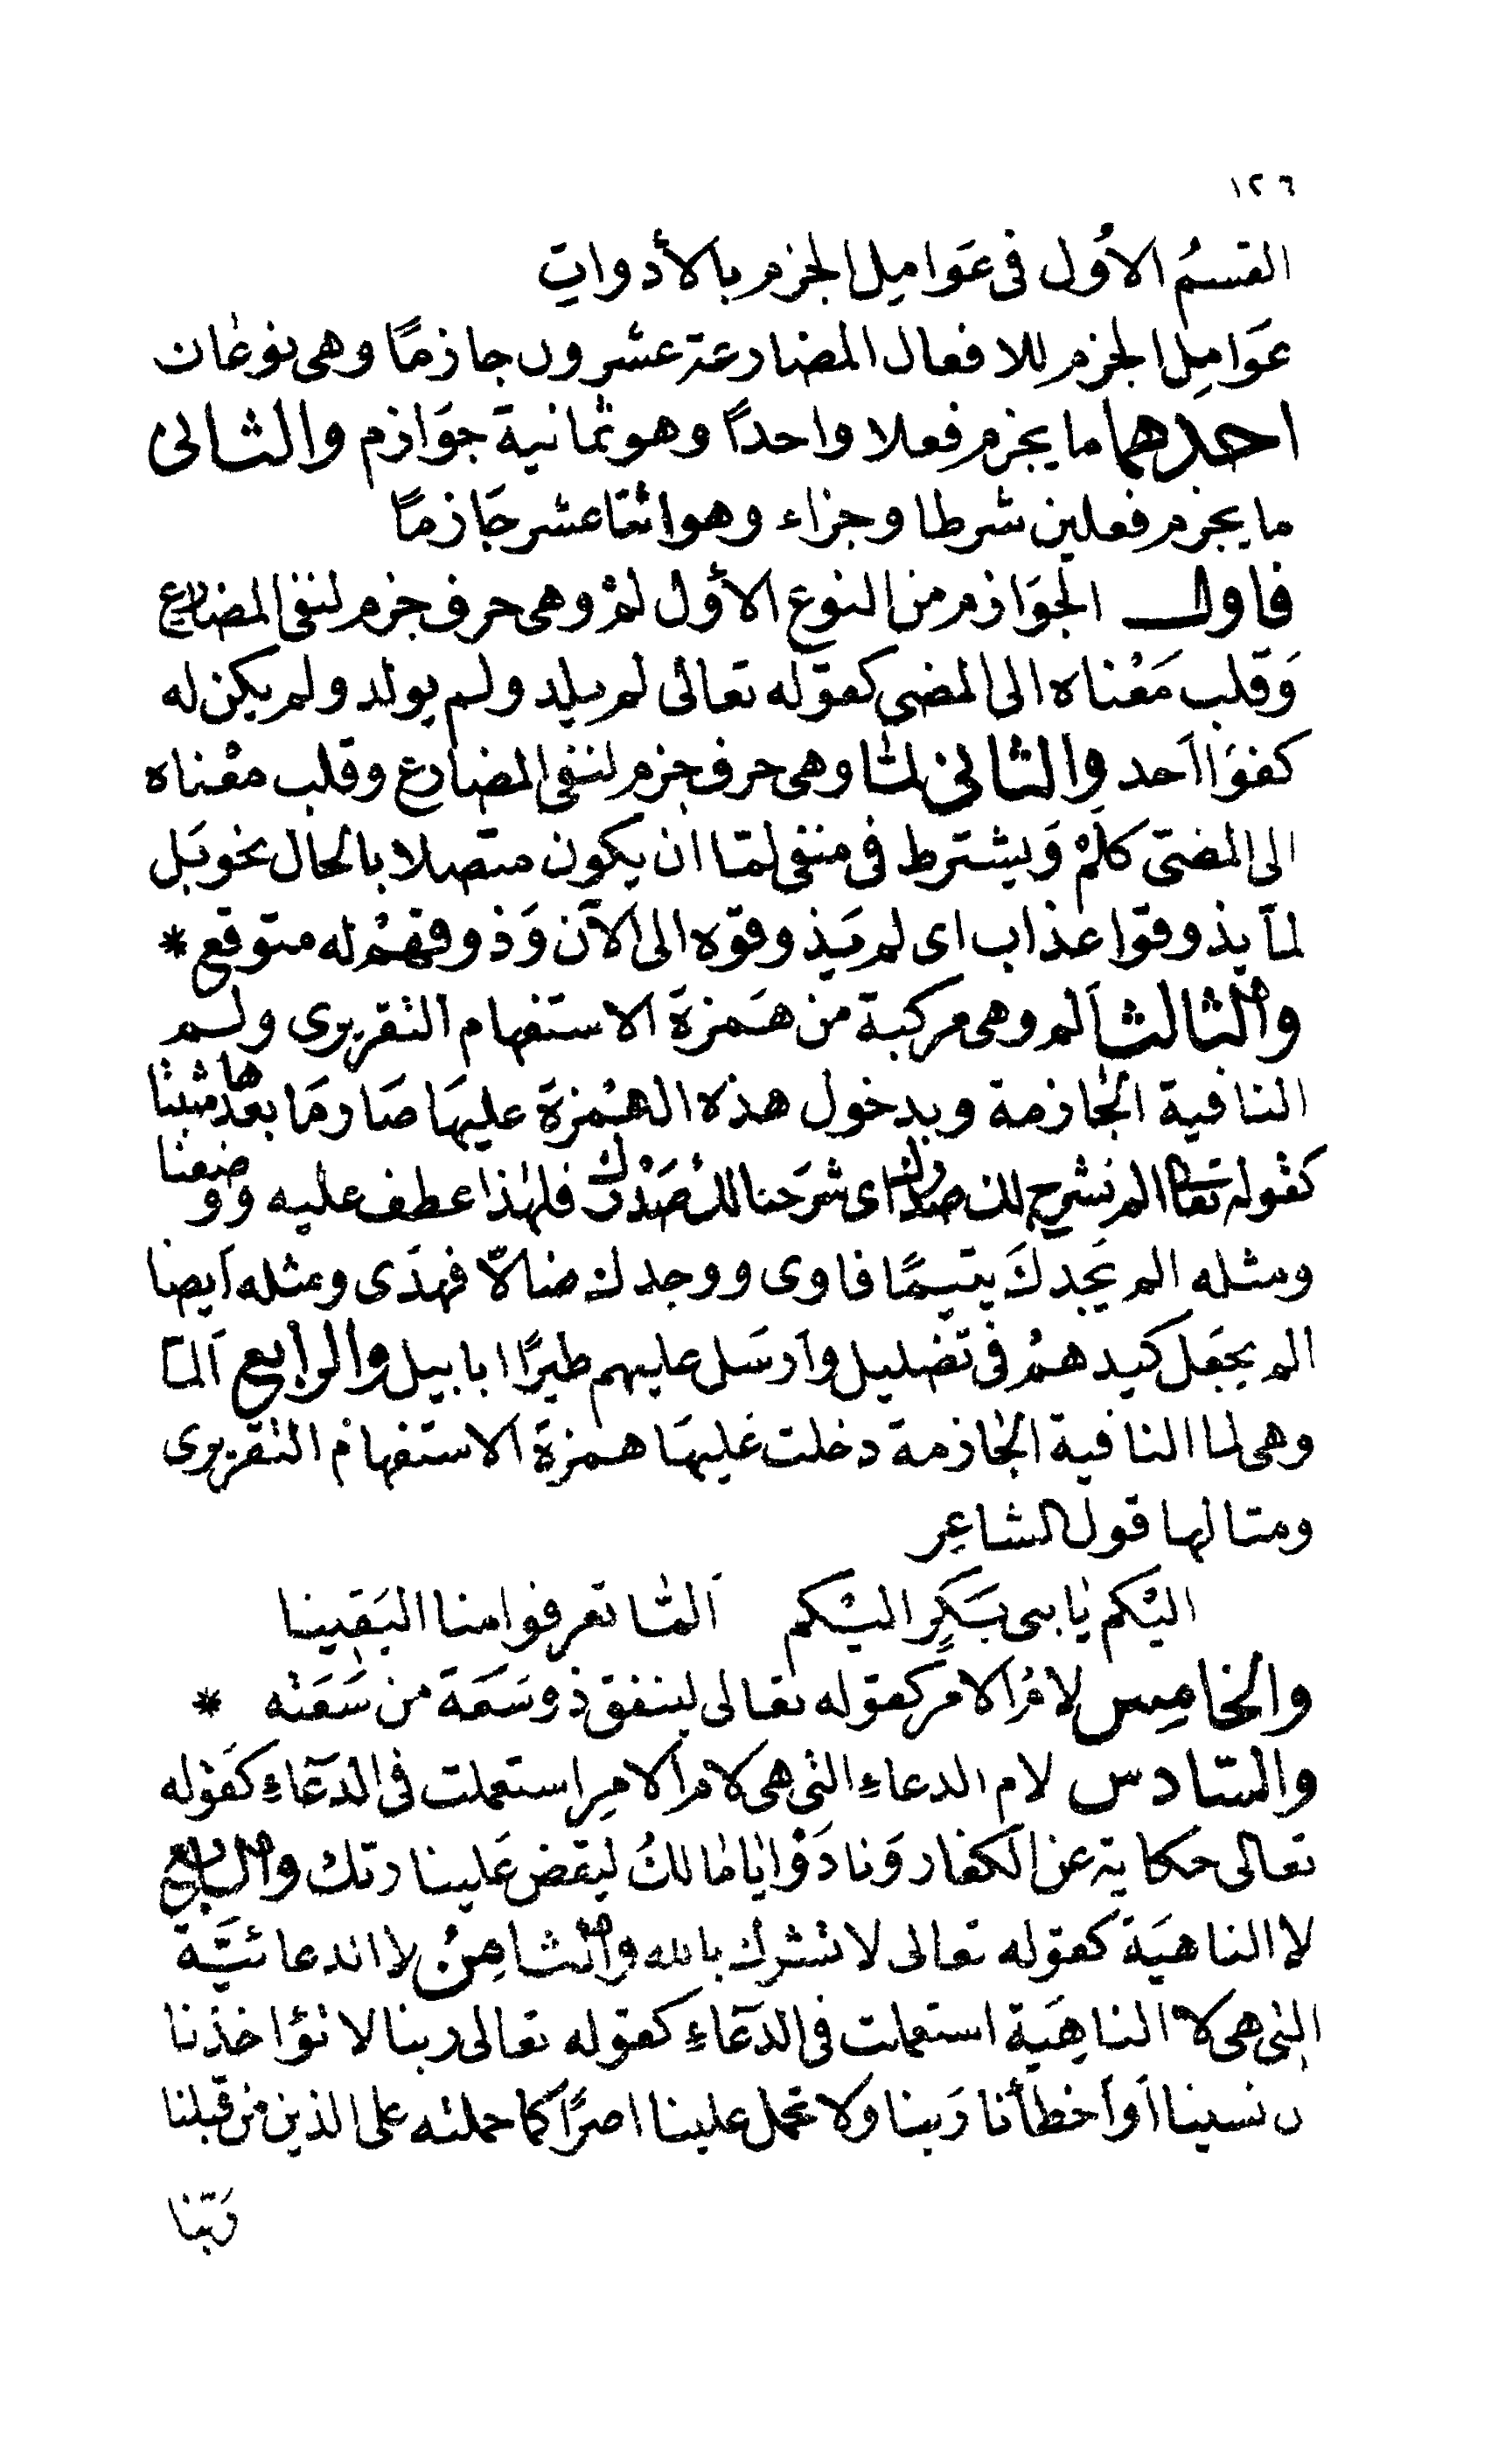 ١٢٦
القسمُ الاُول فى عَوامِل الجزم بالأدواتِ
عَوامِل الجزم للافعال المضارعة عشرون جازمًا وهى نوعان
احدهما ما يجزم فعلا واحدًا وهو ثمانية جوَازم والثانى
ما يجزم فعلين شرطا وجزاء وهو اثنا عشر جَازمًا
فاول الجوَازم من النوع الأول لمْ وهى حرف جزم لنفى المضارع
وَقلب مَعْناه الى المضى كقوله تعالى لم يلد ولم يولد ولم يكن له
كفوَا اَحد والثانى لمّا وهى حرف جزم لنفى المضارع وقلب معْناه
الى المضىّ كلَمْ وَيشترط فى منفى لمّا ان يكون متصلا بالحال نحو بَل
لمّا يذوقوا عذاب اى لم يَذوقوه الى الآن وَذوقهمْ له متوقع *
والثالث اَلم وهى مركبة من هَمزة الاستفهام التقريرى ولم
النافية الجازمة وبدخول هذه الهمْزة عليهَا صَار مَا بعدها مثبتا
كقوله تعالى الم نشرح لك صدرك اى شرَحنا لك صَدْرك فلهٰذا عطف عليه ووضعنا
ومثله الم يَجدكَ يتيمًا فاوى ووجدك ضالّا فهدَى ومثله اَيضا
الم يجعَل كيدهمْ فى تضليل واَرسَل عليهم طيرًا ابابيل والرابع اَلمّا
وهى لما النافية الجازمة دخلت عليهَا همزة الاستفهام التقريرى
ومثالها قول الشاعِر
اليْكم يَا بنى بَكرٍ اليْكم اَلمّا تعرفوا منا اليَقينا
والخامِس لامُ الامر كقوله تعالى لينفق ذو سَعَة من سَعَته *
والسّادس لام الدعاءِ التى هى لام الامِر استعملت فى الدعَاءِ كقوْله
تعالى حكاية عن الكفار وَنادَوْا يَا مَالكُ ليقض عَلينا ربّك والسابع
لا الناهيَة كقوله تعالى لا تشرك بالله والثامِنُ لا الدعائيَّة
التى هى لا الناهِيَة استعملت فى الدعَاءِ كقوله تعالى ربنا لا تؤاخذنا
ان نسينا اَو اَخطأنا رَبنا ولا تحمل علينا اصرًا كما حملته على الذين من قبلنا
رَبّنا